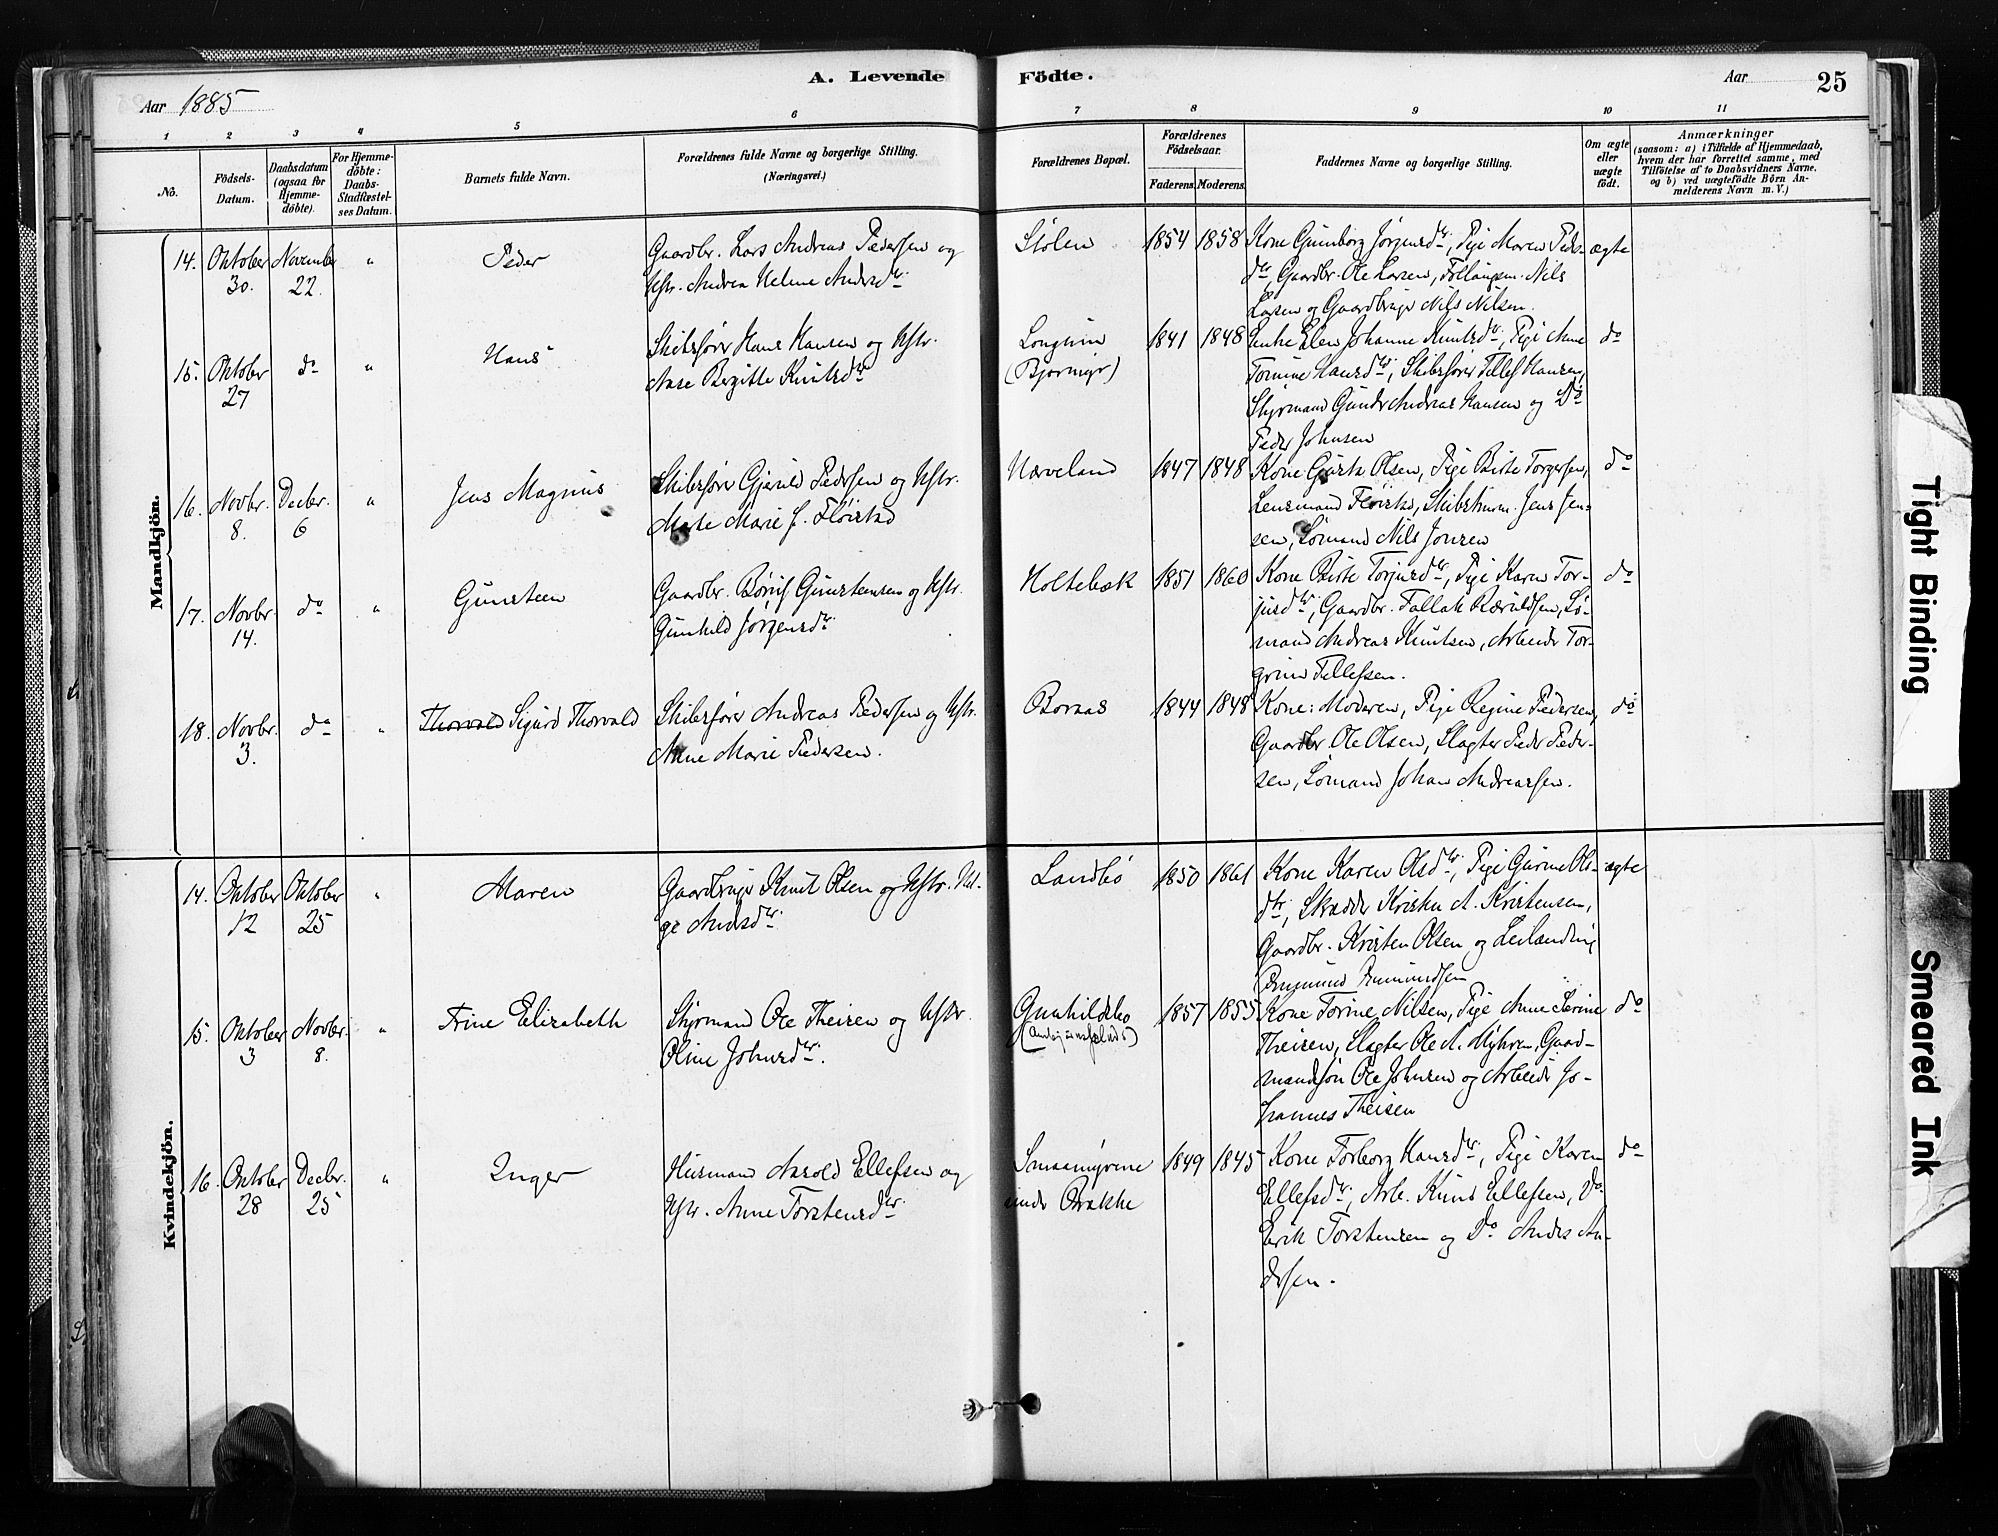 A. Levende Födte.
Aar 1885
Aar
25
1 2 3 4 5 6 7 8 9 10 11
No.
Födsels-
Datum.
Daabsdatum
(ogsaa for
Hjemme-
döbte).
For Hjemme-
döbte:
Daabs-
Stadfæstel-
ses Datum.
Barnets fulde Navn.
Forældrenes fulde Navne og borgerlige Stilling.
(Næringsvei.)
Forældrenes Bopæl.
Forældrenes
Födselsaar.
Faderens. Moderens.
Faddernes Navne og borgerlige Stilling.
Om ægte
eller
uægte
født.
Anmærkninger
(saasom: a) i Tilfælde af Hjemmedaab,
hvem der har forrettet samme, med
Tilföielse af to Daabsvidners Navne,
og b) ved uægtefödte Börn An-
melderens Navn m. V.)
Mandkjön.
14. Oktober 30. November 22. " Peder
Gaardbr. Lars Andreas Pedersen og
Hstr. Andrea Helene Andersdtr.
Stölen 1854 1858
Kone Gunborg Jörgensdtr., Pige Maren Peds-
dtr, Gaardbr. Ole Larsen, Nils
Larsen og Gaardbruger Nils Nilsen.
ægte
15. Oktober 27 do " Hans
Skibsförer Hans Hansen og Hstr.
Anne Bergitte Knutsdtr.
Longum
(Bjormyr)
1841 1848
Enke Elen Johanne Knutsdtr., Pige Anne
Tomine Hansdtr., Skibsförer Tellef Hansen,
Styrmand Gunder Andreas Hansen og Do
Peder Johnsen
do
16. Novbr. 8. Decbr. 6 " Jens Magnus
Skibsförer Gjeruld Pedersen og Hstr.
Marte Marie J. Flöistad
Næveland 1847 1848
Kone Gurte Olsen, Pige Birte Torgersen,
Lensmand Flöistad, Skibstöm. Jens Jen-
sen, Sömand Nils Jensen
do
17. Novbr. 14. do " Gunsteen
Gaardbr. Böruf Gunsteensen og Hstr.
Gunhild Jörgensdtr.
Holtebæk 1851 1860
Kone Birte Torjusdtr., Pige Karen Tor-
jusdtr., Gaardbr. Tallak Ræruldsen, Sö-
mand Andreas Knutsen, Arbeider Tor-
grim Tellefsen.
do
18. Novbr. 3. do " Thorvald Sigurd Thorvald
Skibsförer Andreas Pedersen og Hstr.
Anne Marie Pedersen.
Bornas 1844 1848
Kone: Moderen, Pige Regine Pedersen,
Gaardbr. Ole Olsen, Slagter Peder Peder-
sen, Sömand Johan Andreassen.
do
Kvindekjön.
14. Oktober 12 Oktober 25 " Maren
Gaardbruger Knut Olsen og Hstr. Hel-
ge Andersdtr.
Landbö 1850 1861
Kone Karen Olsdtr., Pige Gurine Ols-
dtr., Skrædder Kristen A. Kristensen,
Gaardbr. Kristen Olsen og Leilænding
ægte
15. Oktober 3 Novbr. 8. " Trine Elizabeth
Styrmand Ole Theisen og Hstr.
Oline Johnsdtr.
Gunhildsbo
1857 1855
Kone Torine Nilsen, Pige Anne Serine
Theisen, Slagter Ole A. Myhren, Gaard-
mandssön Ole Johnsen og Arbeider Jo-
hannes Theisen
do
16. Oktober 28 Decbr. 25 " Inger
Husmand Aarold Ellefsen og
Hstr. Anne Torstensdtr.
Smaamyrene
under Brække
1849 1845
Kone Torborg Hansdtr., Pige Karen
Ellefsdtr., Arb. Knud Ellefsen, Do.
Erik Torstensen og Do Anders An-
dersen.
do
Tight Binding
Smeared Ink